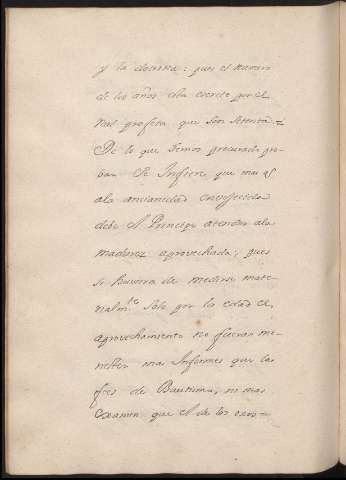 y la doctrina: pues el numero
de los años esta escrito por el
Real profeta que son setenta =
De lo que hemos procurado pro-
bar Se Infiere que mas q̃
ala ancianidad envejecida
debe el Principe atender ala
madurez aprovechada; pues
si huviera de medirse mate-
rialm.te solo por la edad el
aprovechamiento no fueran me-
nester mas Informes que las
fees de Bautismo, ni mas
examen que el de los ros=